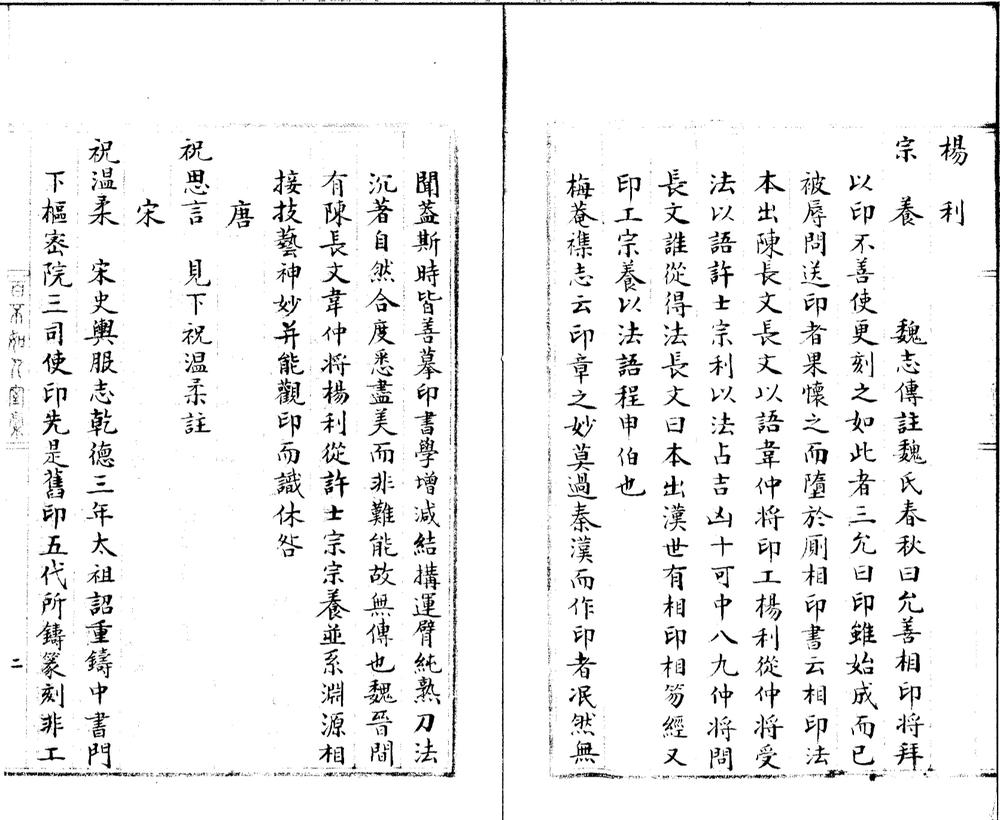 楊利
宗養　魏志傳註魏氏春秋曰允善相印將拜
以印不善使更刻之如此者三允曰印雖始成而已
被辱問送印者果懷之而墮於厠相印書云相印法
本出陳長文長文以語韋仲將印工楊利從仲將受
法以語許士宗利以法占吉凶十可中八九仲將問
長文誰從得法長文曰本出漢世有相印相笏經又
印工宗養以法語程申伯也
梅菴襍志云印章之妙莫過秦漢而作印者泯然無
聞葢斯時皆善摹印書學增減結搆運臂純熟刀法
沉著自然合度悉盡美而非難能故無傳也魏晉間
有陳長文韋仲將楊利從許士宗宗養並系淵源相
接技藝神妙并能觀印而識休咎
唐
祝思言　見下祝温柔註
宋
祝温柔　宋史輿服志乾德三年太祖詔重鑄中書門
下樞宻院三司使印先是舊印五代所鑄篆刻非工
二